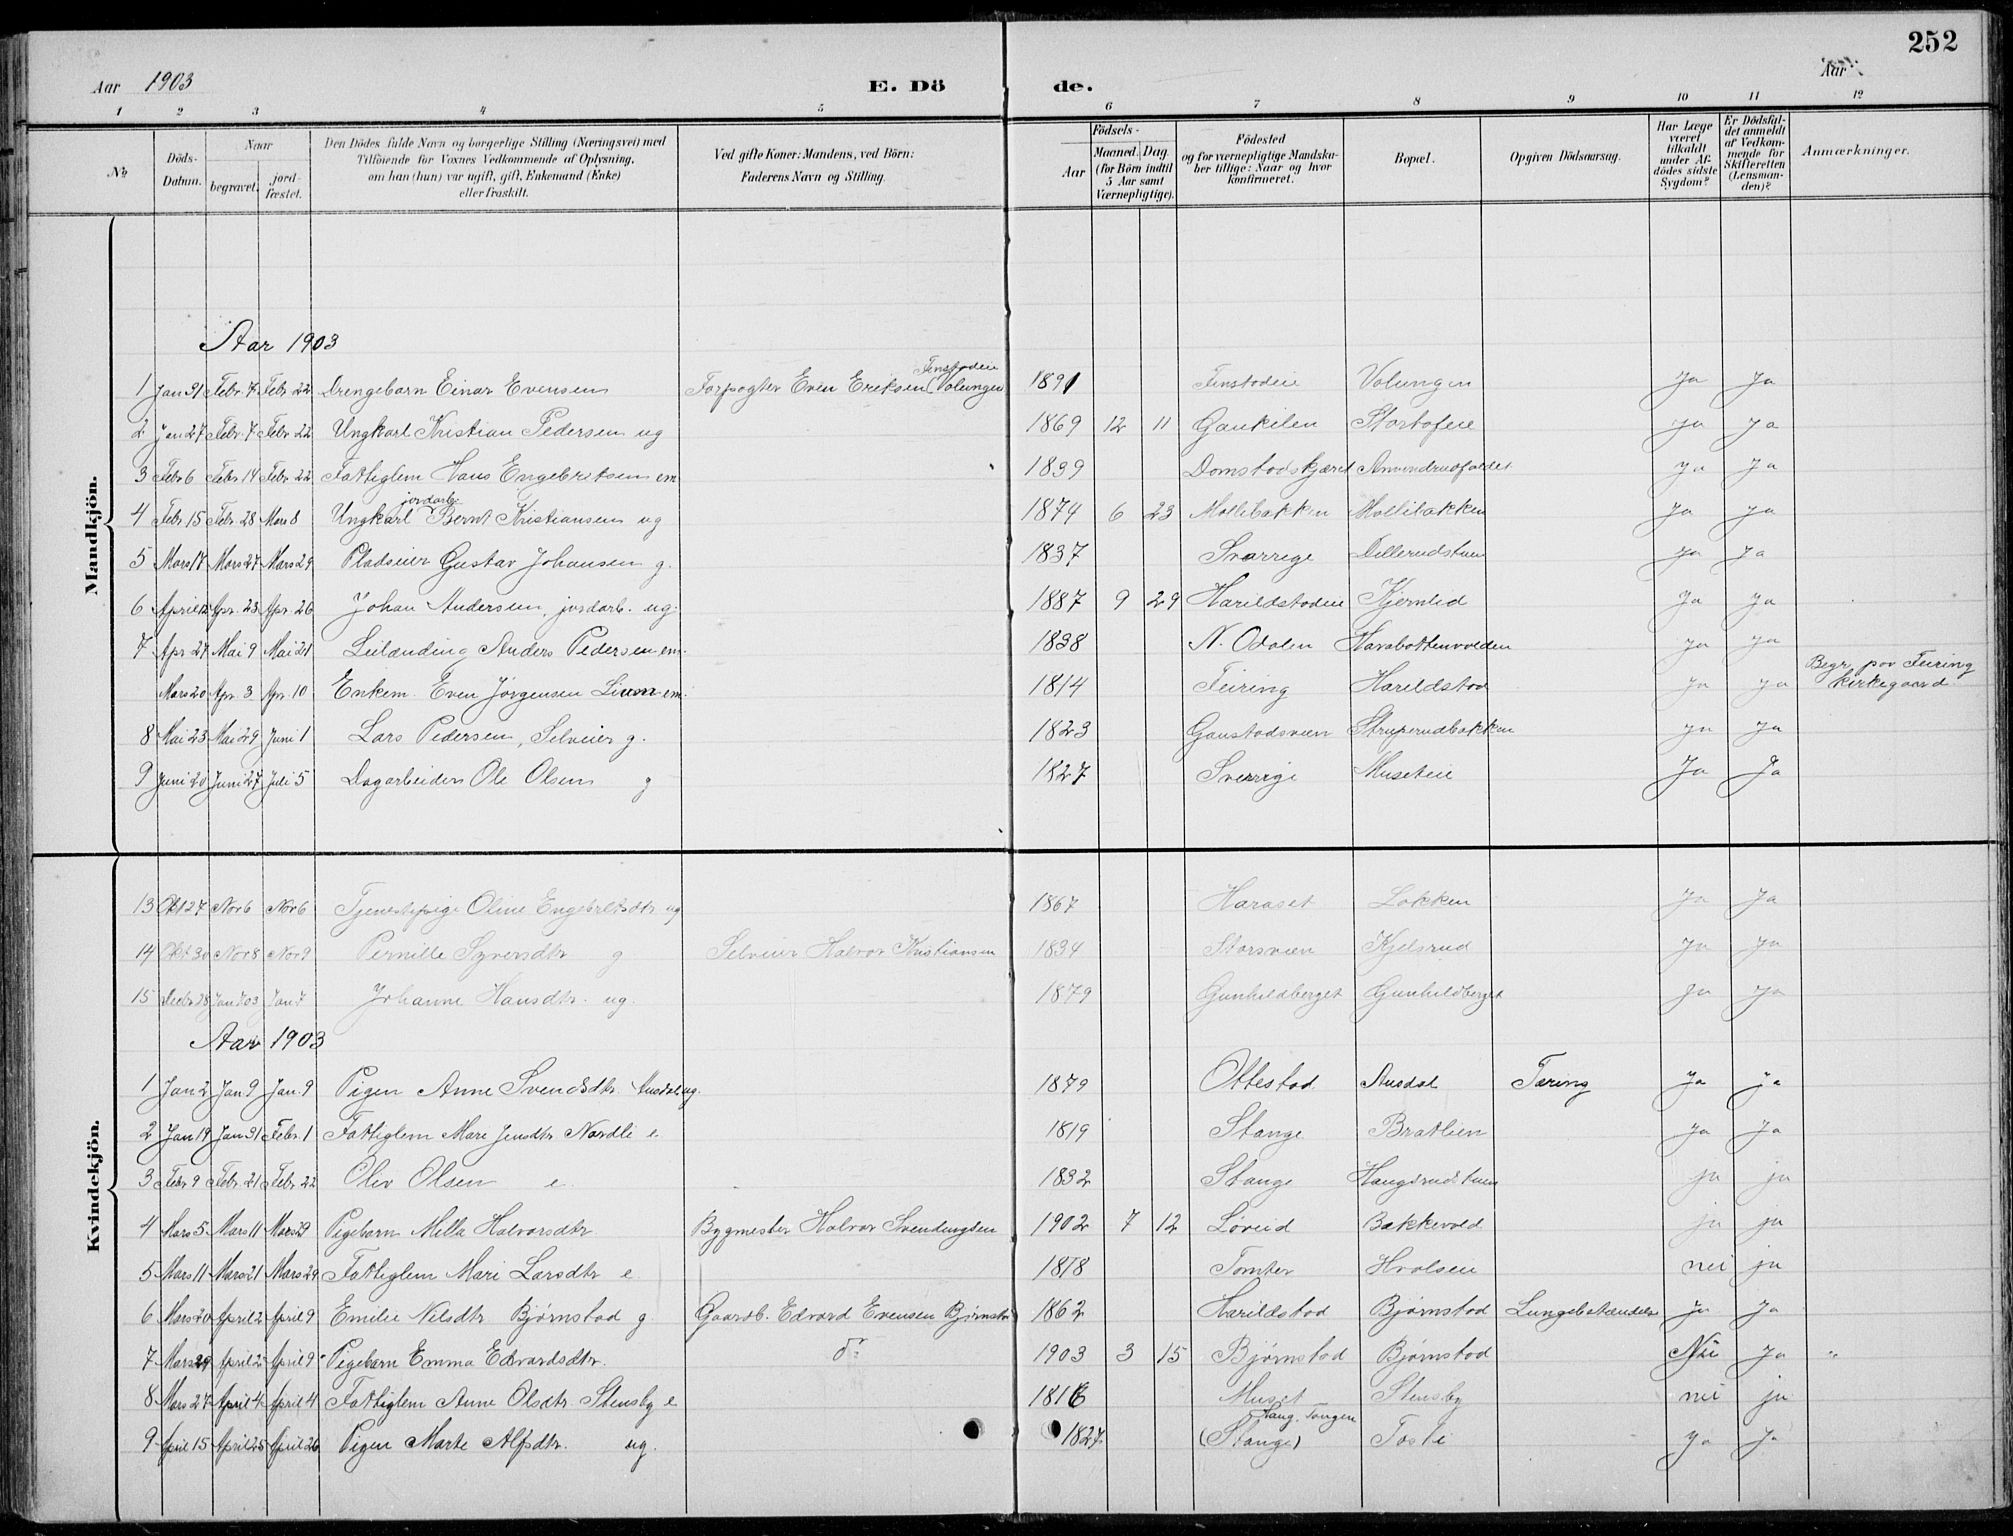 252
Aar 1903 E. Dö de. Aar
1 2 3 4 5 6 7 8 9 10 11 12
No
Döds-Datum.
Naar
begravet.
jordfæstet.
Den Dödes fulde Navn og borgerlige Stilling (Næringsvei) med
Tilföiende for Voxnes Vedkommende af Oplysning,
om han (hun) var ugift, gift, Enkemand (Enke)
eller fraskilt.
Ved gifte Koner: Mandens, ved Börn:
Faderens Navn og Stilling.
Födsels-
Aar
Maaned. Dag.
(for Börn indtil
5 Aar samt
Værnepligtige).
Födested
og for værnepligtige Mandskaber tillige: Naar og hvor
konfirmeret.
Bopæl.
Opgiven Dödsaarsag.
Har Læge
været
tilkaldt
under Afdödes sidste
Sygdom?
Er Dödsfaldet anmeldt
af Vedkommende for
Skifteretten
(Lensmanden)?
Anmærkninger.
Mandkjön.
Aar 1903
1 Jan 31 Febr. 7 Febr 22 Drengebarn Einar Evensen Forpagter Even Eriksen (Volungen Finstadeie 1891 Finstadeie Volungen Ja Ja
2 Jan 27 Febr. 7 Febr 22 Ungkarl Kristian Pedersen ug 1869 12 11 Gaukilen Startofeie ja ja
3 Febr 6 Febr 14 Febr 22 Fattiglem Hans Engebretsen em 1839 Domstadskjæret ja ja
4 Febr 15 Febr 28 Mars 8 Ungkarl jordarb. Bernt Kristiansen ug 1874 6 23 Mollibakken Mollibakken Ja ja
5 Mars 17 Mars 27 Mars 29 Pladseier Gustav Johansen g. 1837 Svarrige Dellerudstuen ja ja
6 April 12 Apr. 23 Apr. 26 Johan Andersen, jordarb. ug. 1887 9 29 Harildstadeie Kjernlid Ja ja
7 Apr 27 Mai 9 Mai 21 Leilænding Anders Pedersen em. 1838 N. Odalen Harabottenvolden ja ja
Mars 20 Apr. 3 Apr. 10 Enkem. Even Jørgensen em. 1814 Feiring Harildstad ja ja Begr. paa Feiring
kirkegaard
8 Mai 23 Mai 29 Juni 1 Lars Pedersen, Selveier g. 1823 Gaustadsvæen Struperudbakken ja ja
9 Juni 20 Juni 27 Juli 5 Dagarbeider Ole Olsen g 1827 Sverrige Museteie Ja Ja
Kvindekjön.
13 Okt 27 Nov 6 Nov 6 Tjenestepige Oline Engebretsdtr ug 1867 Haraset Løkken Ja Ja
14 Okt 30 Nov 8 Nov 9 Pernille Syversdtr g Selveier Halvor Kristiansen 1834 Storsveen Kjelsrud Ja Ja
15 Decbr 28 Jan 7 03 Jan 7 Johanne Hansdtr. ug. 1879 Gunhildberget Gunhildberget Ja ja
Aar 1903
1 Jan 2 Jan 9 Jan. 9 Pigen Anne Svendsdtr. ug. 1879 Ottestad Ausdal Tæring ja ja
2 Jan 19 Jan 31 Febr. 1 Fattiglem Mari Jensdtr Nordli e. 1819 Stange Bratlien ja Ja
3 Febr 9 Febr. 21 Febr. 22 Oliv Olsen e. 1832 Stange Haugsrudstuen ja ja
4 Mars 5 Mars 11 Mars 29 Pigebarn Milla Halvorsdtr Bygmester Halvor Svendingsen 1902 7 12 Løveid Bakkevold ja ja
5 Mars 11 Mars 21 Mars 29 Fattiglem Mari Larsdtr e 1818 Tomter Hvalseie nei ja
6 Mars 20 April 2 April 9 Emilie Nilsdtr Bjørnstad g Gaardb. Edvard Evensen Bjørnstad 1862 Harildstad Bjørnstad Lungebetændelse ja ja
7 Mars 29 April 2 April 9 Pigebarn Emma Edvardsdtr. do 1903 3 15 Bjørnstad Bjørnstad Nei ja "
8 Mars 27 April 4 April 4 Fattiglem Anne Olsdtr Stensby e 1816 Muset Stensby nei ja
9 April 15 April 25 April 26 Pigen Marte Alfsdtr. ug. 1827 (Stange) Tangen Toste ja ja